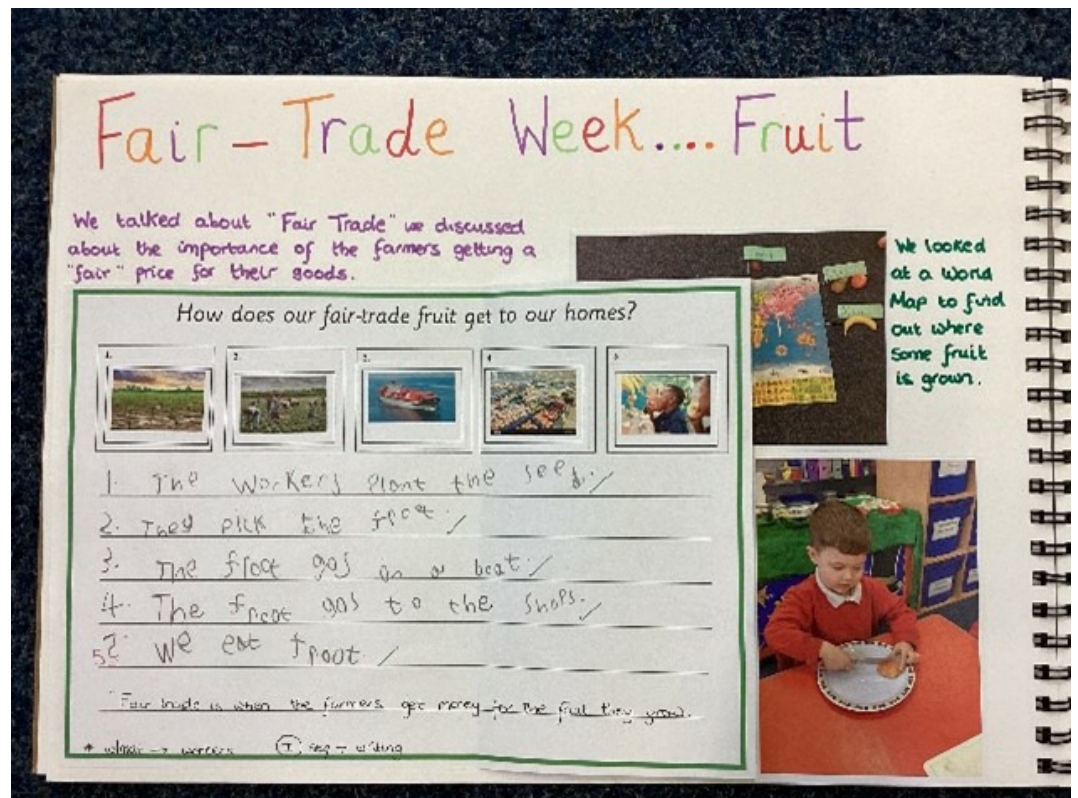 Fair-Trade Week.... Fruit
We talked about "Fair Trade" we discussed
about the importance of the farmers getting a
"fair" price for their goods.
We looked
at a World
Map to find
out where
some fruit
is grown.
How does our fair-trade fruit get to our homes?
1. 2. 3. 4 5
1. The workers plant the seed.
2. They pick the froot.
3. The froot gos on a boat.
4. The froot gos to the shops.
5. We eat froot.
"Fair trade is when the farmers get money for the fruit they grow.
workers
writing